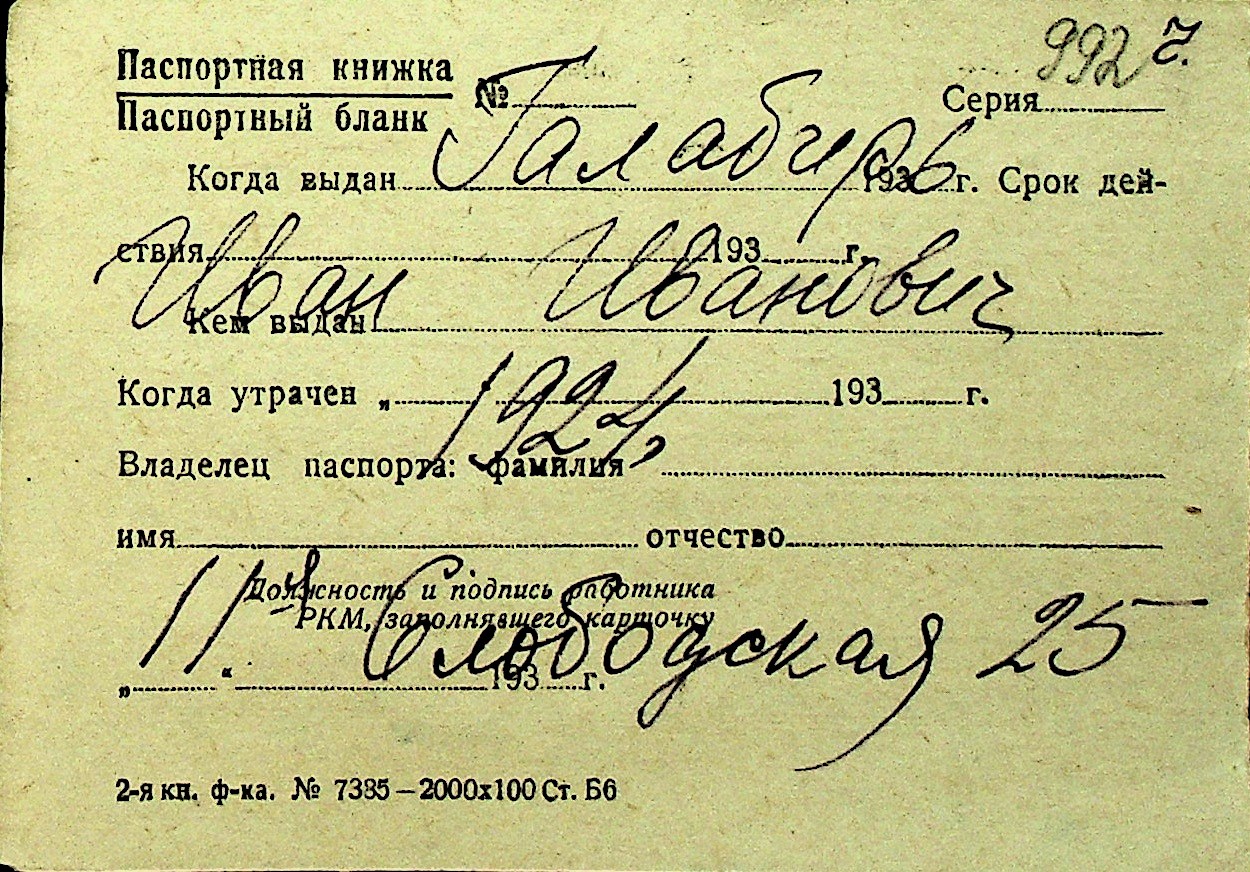 992 г.
Паспортная книжка
Паспортный бланк № Серия
Галабирь
Когда выдан 193 г. Срок дей-
ствия 193 г.
Иван Иванович
Кем выдан
Когда утрачен „ " 193 г.
1924
Владелец паспорта: фамилия
имя отчество
Должность и подпись работника
РКМ, заполнявшего карточку
11я Слободская 25
„ “ 193 г.
2-я кн. ф-ка. № 7385—2000х100 Ст. Б6